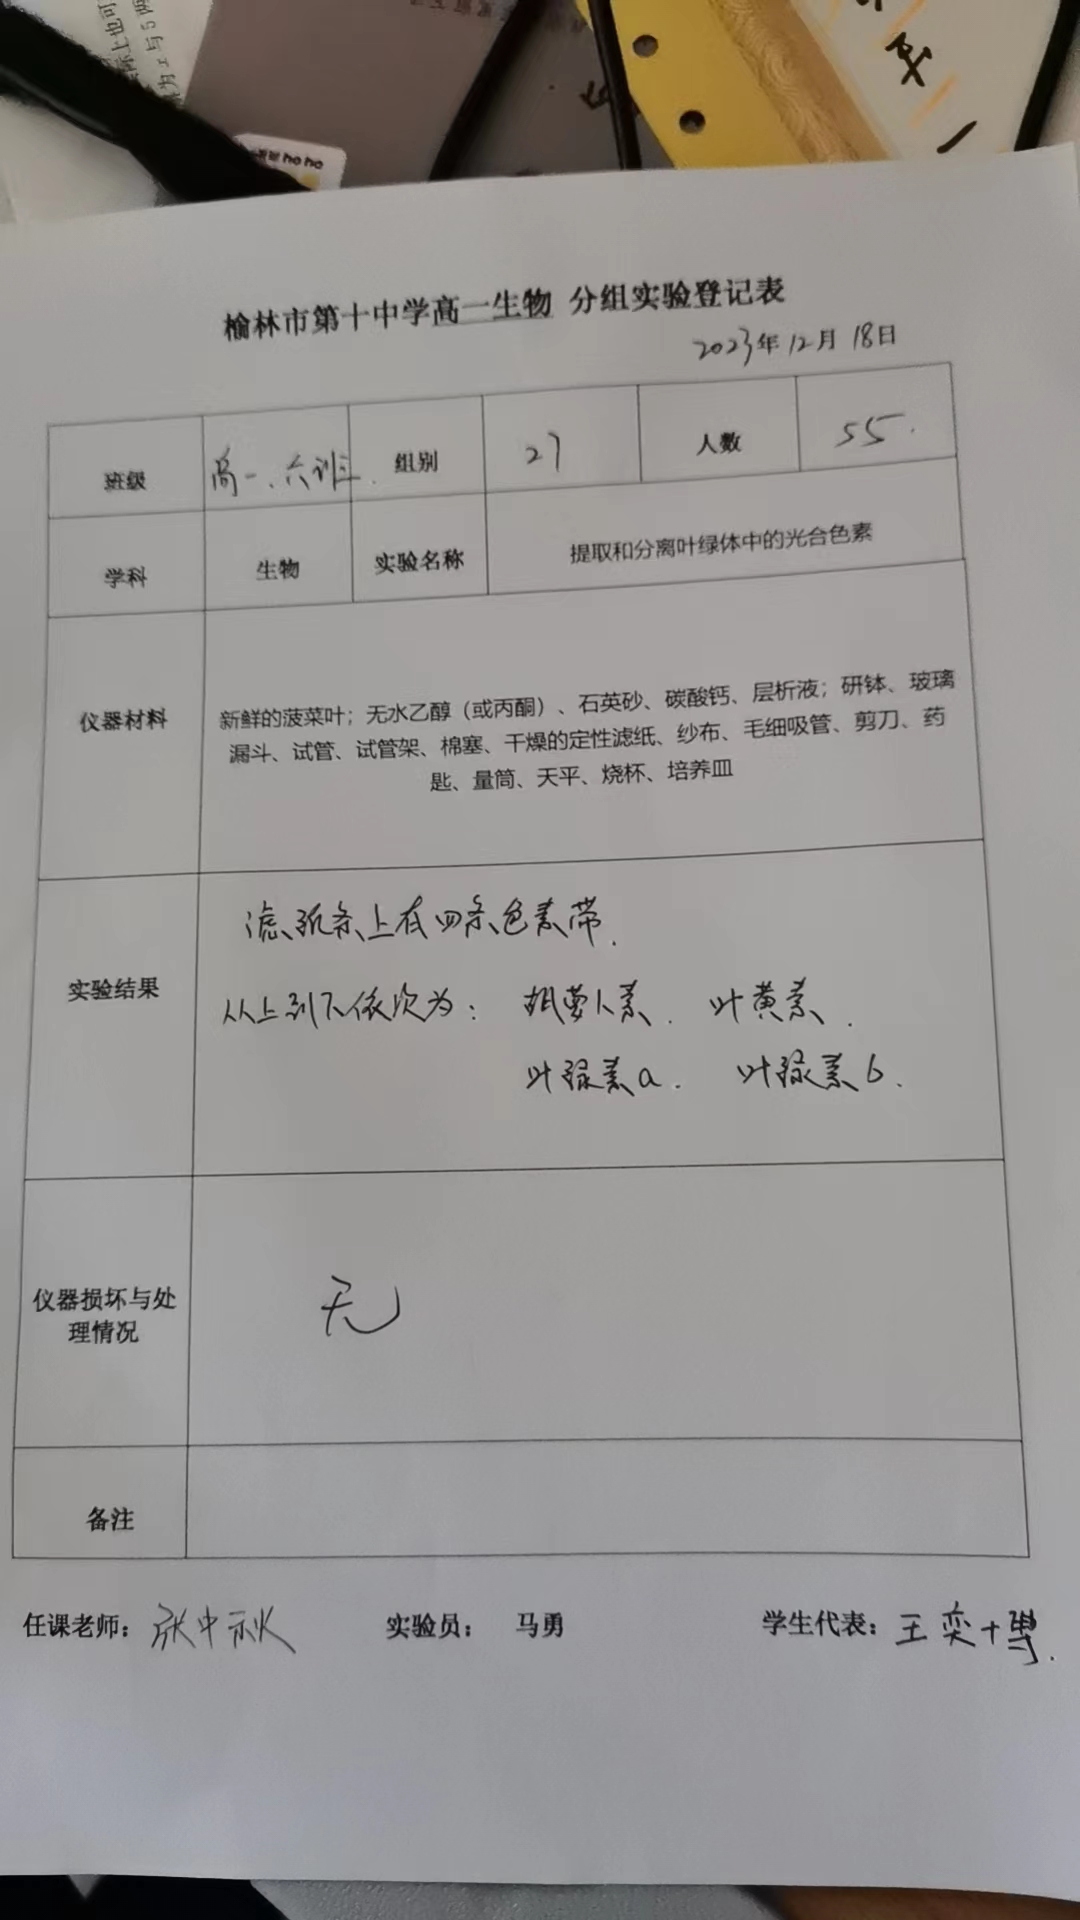 ho ho
榆林市第十中学高一生物 分组实验登记表
2023年12月18日
班级 高一、六班 组别 27 人数 55.
学科 生物 实验名称 提取和分离叶绿体中的光合色素
仪器材料
新鲜的菠菜叶；无水乙醇（或丙酮）、石英砂、碳酸钙、层析液；研钵、玻璃
漏斗、试管、试管架、棉塞、干燥的定性滤纸、纱布、毛细吸管、剪刀、药
匙、量筒、天平、烧杯、培养皿
实验结果
滤纸条上有四条色素带.
从上到下依次为： 胡萝卜素. 叶黄素.
叶绿素a. 叶绿素b.
仪器损坏与处
理情况
无
备注
任课老师：张中秋 实验员： 马勇 学生代表：王奕博.